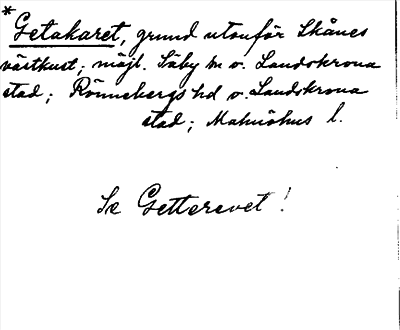 * Getakaret, grund utanför Skånes
västkust; möjl. Säby sn o. Landskrona
stad; Rönnebergs hd o. Landskrona
stad; Malmöhus l.
Se Getterevet!